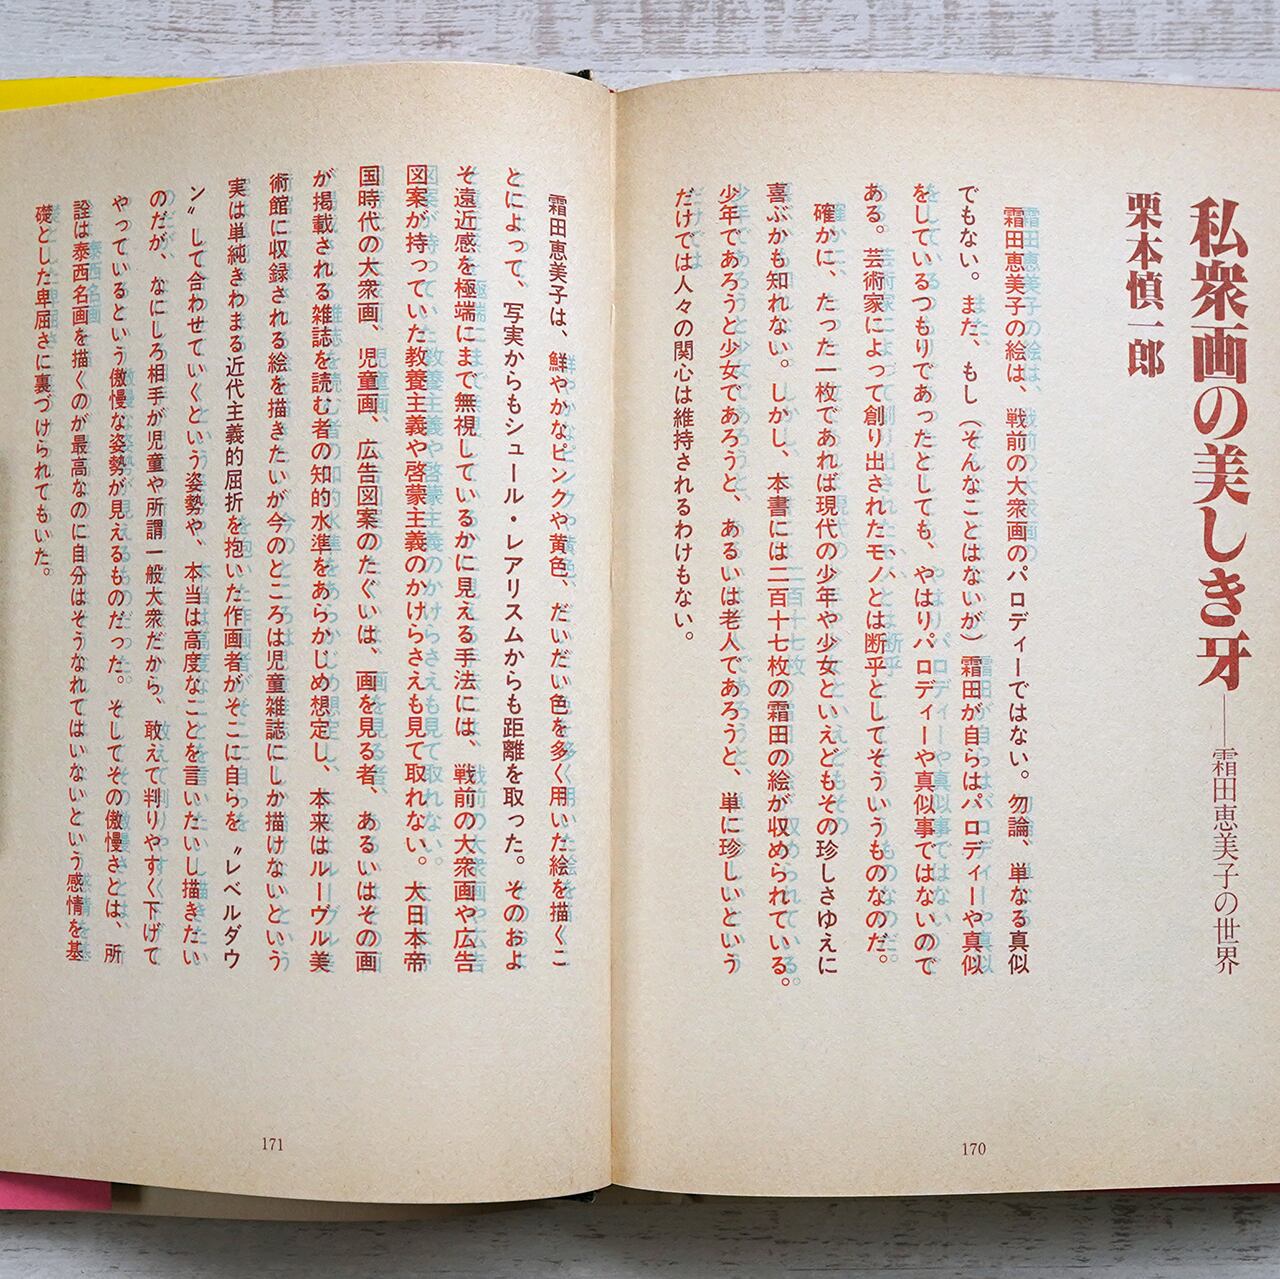 私衆画の美しき牙――霜田恵美子の世界
栗本慎一郎
霜田恵美子の絵は、戦前の大衆画のパロディーではない。勿論、単なる真似
でもない。また、もし（そんなことはないが）霜田が自らはパロディーや真似
をしているつもりであったとしても、やはりパロディーや真似事ではないので
ある。芸術家によって創り出されたモノとは断乎としてそういうものなのだ。
確かに、たった一枚であれば現代の少年や少女といえどもその珍しさゆえに
喜ぶかも知れない。しかし、本書には二百十七枚の霜田の絵が収められている。
少年であろうと少女であろうと、あるいは老人であろうと、単に珍しいという
だけでは人々の関心は維持されるわけもない。
170
霜田恵美子は、鮮やかなピンクや黄色、だいだい色を多く用いた絵を描くこ
とによって、写実からもシュール・レアリスムからも距離を取った。そのおよ
そ遠近感を極端にまで無視しているかに見える手法には、戦前の大衆画や広告
図案が持っていた教養主義や啓蒙主義のかけらさえも見て取れない。大日本帝
国時代の大衆画、児童画、広告図案のたぐいは、画を見る者、あるいはその画
が掲載される雑誌を読む者の知的水準をあらかじめ想定し、本来はルーヴル美
術館に収録される絵を描きたいが今のところは児童雑誌にしか描けないという
実は単純きわまる近代主義的屈折を抱いた作画者がそこに自らを〝レベルダウ
ン〟して合わせていくという姿勢や、本当は高度なことを言いたいし描きたい
のだが、なにしろ相手が児童や所謂一般大衆だから、敢えて判りやすく下げて
やっているという傲慢な姿勢が見えるものだった。そしてその傲慢さとは、所
詮は泰西名画を描くのが最高なのに自分はそうなれてはいないという感情を基
礎とした卑屈さに裏づけられてもいた。
171